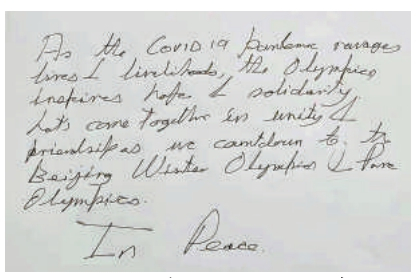 As the COVID 19 pandemic ravages
lives & livelihoods, the Olympics
inspires hope & solidarity.
Let's come together in unity &
friendship as we countdown to the
Beijing Winter Olympics & Para
Olympics.
In Peace.